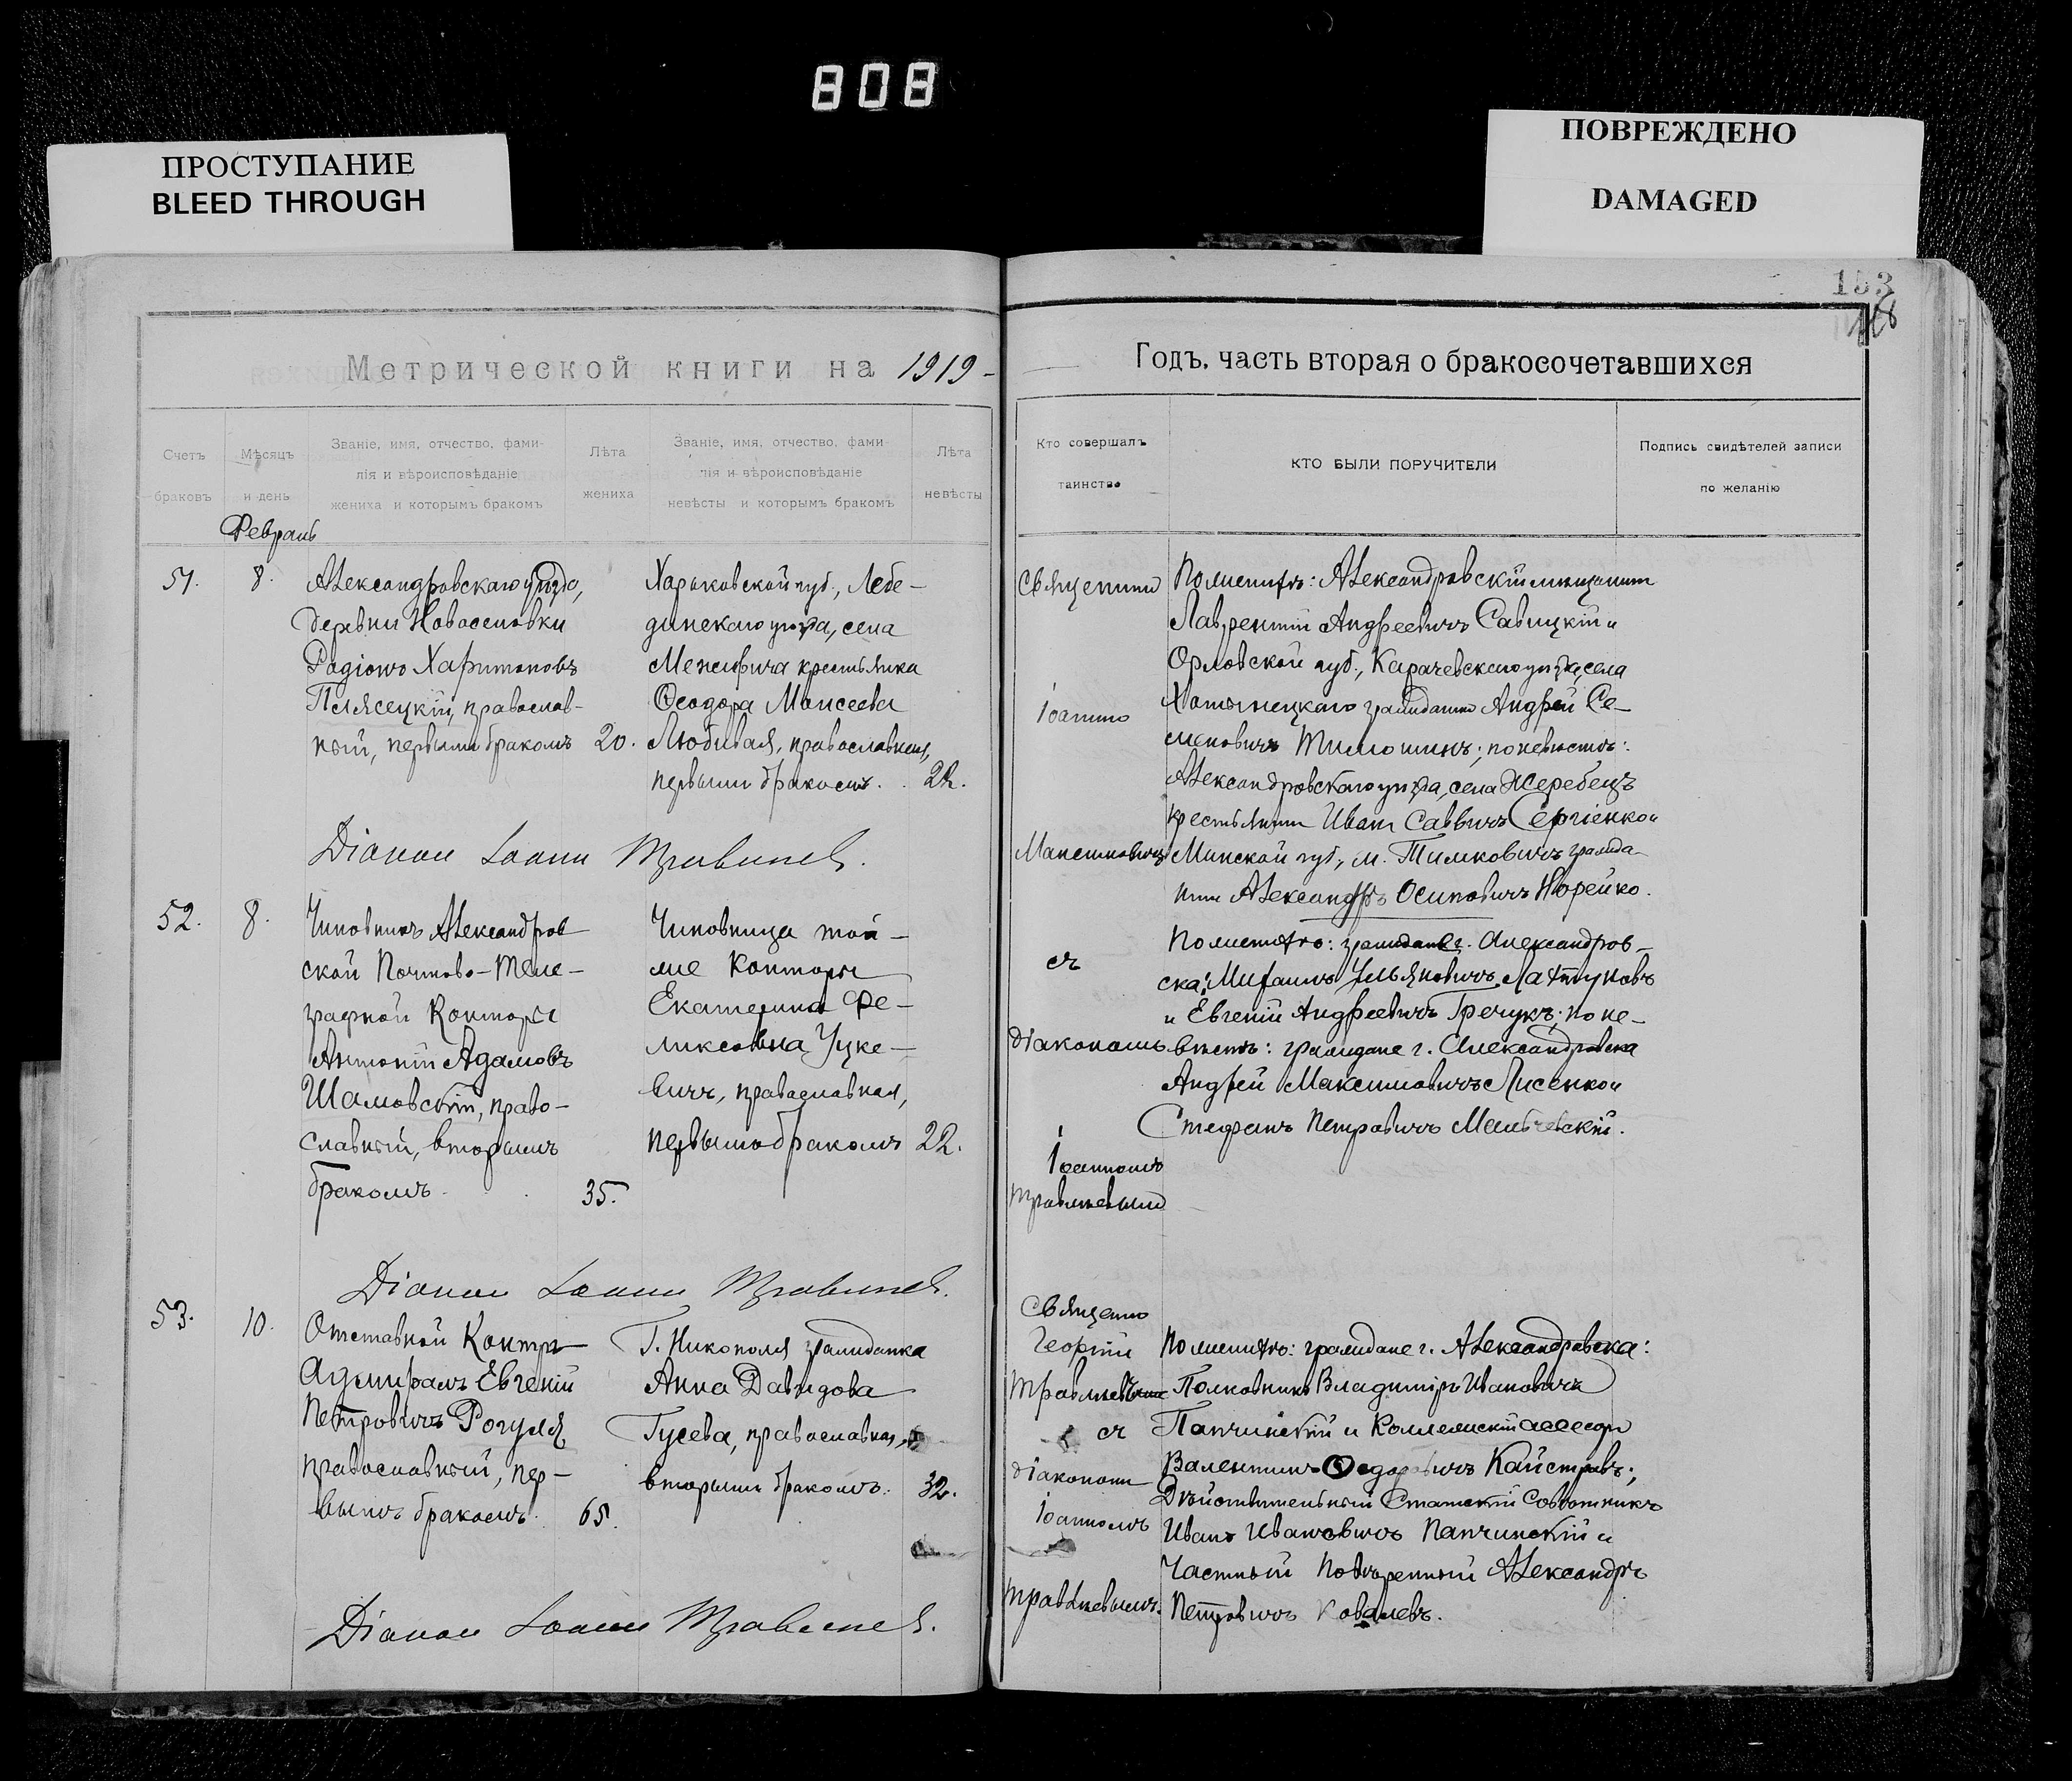 808
ПРОСТУПАНИЕ
BLEED THROUGH
ПОВРЕЖДЕНО
DAMAGED
Метрической книги на 1919
Счетъ браковъ
Мѣсяцъ и день
Званіе, имя, отчество, фами-
лія и вѣроисповѣданіе
жениха и которымъ бракомъ
Лѣта жениха
Званіе, имя, отчество, фами-
лія и вѣроисповѣданіе
невѣсты и которымъ бракомъ
Лѣта невѣсты
Февраль
51.
8.
Александровскаго уѣзда,
деревни Новоселовки
Родіонъ Харитоновъ
Плясецкій, православ-
ный, первымъ бракомъ
20.
Харьковской губ., Лебе-
динскаго уѣзда, села
Межирича крестьянка
Ѳеодора Моисеева
Любивая, православная,
первымъ бракомъ.
22.
Діакон Іоанн Травлнев.
52.
8.
Чиновникъ Александров
ской Почтово-Теле-
графной Конторы
Антоній Адамовъ
Шамовскій, право-
славный, вторымъ
бракомъ
35.
Чиновница той-
же Конторы
Екатерина Фе-
ликсовна Уцке-
вичъ, православная,
первымъ бракомъ
22.
Діакон Іоанн
53.
10.
Отставной Контръ
Адмиралъ Евгеній
Петровичъ Рогуля
православный, пер-
вымъ бракомъ
65.
Г. Никополя гражданка
Анна Давидова
Гусева, православная,
вторымъ бракомъ.
32.
Діакон Іоанн
Годъ, часть вторая о бракосочетавшихся
Кто совершалъ таинство
КТО БЫЛИ ПОРУЧИТЕЛИ
Подпись свидѣтелей записи
по желанію
Священник
Іоаннъ
съ
діакономъ
Іоанномъ
По женихѣ: Александровскій мѣщанинъ
Лаврентій Андреевичъ Савицкій и
Орловской губ., Карачевскаго уѣзда, села
гражданинъ Андрей Се-
меновичъ Тимошинъ; по невѣстѣ:
Александровскаго уѣзда, села Жеребецъ
крестьянинъ Иванъ Саввичъ Сергіенко и
Минской губ., м. Тимковичъ гражда
нинъ Александръ Осиповичъ Норейко.
По женихѣ: граждане г. Александров-
ска: Михаилъ Ульяновичъ
и Евгеній Андреевичъ Гречукъ; по не-
вѣстѣ: граждане г. Александровска
Андрей Максимовичъ Лисенко и
Стефанъ Петровичъ
Священно
Георгій
съ
діакономъ
Іоанномъ
По женихѣ: граждане г. Александровска:
Полковникъ Владиміръ Ивановичъ
Папчинскій и Коллежскій Ассесоръ
Валентинъ Ѳедоровичъ Кайстровъ;
Дѣйствительный Статскій Совѣтникъ
Иванъ Ивановичъ Папчинскій и
Частный Повѣренный Александръ
Петровичъ Ковалевъ.